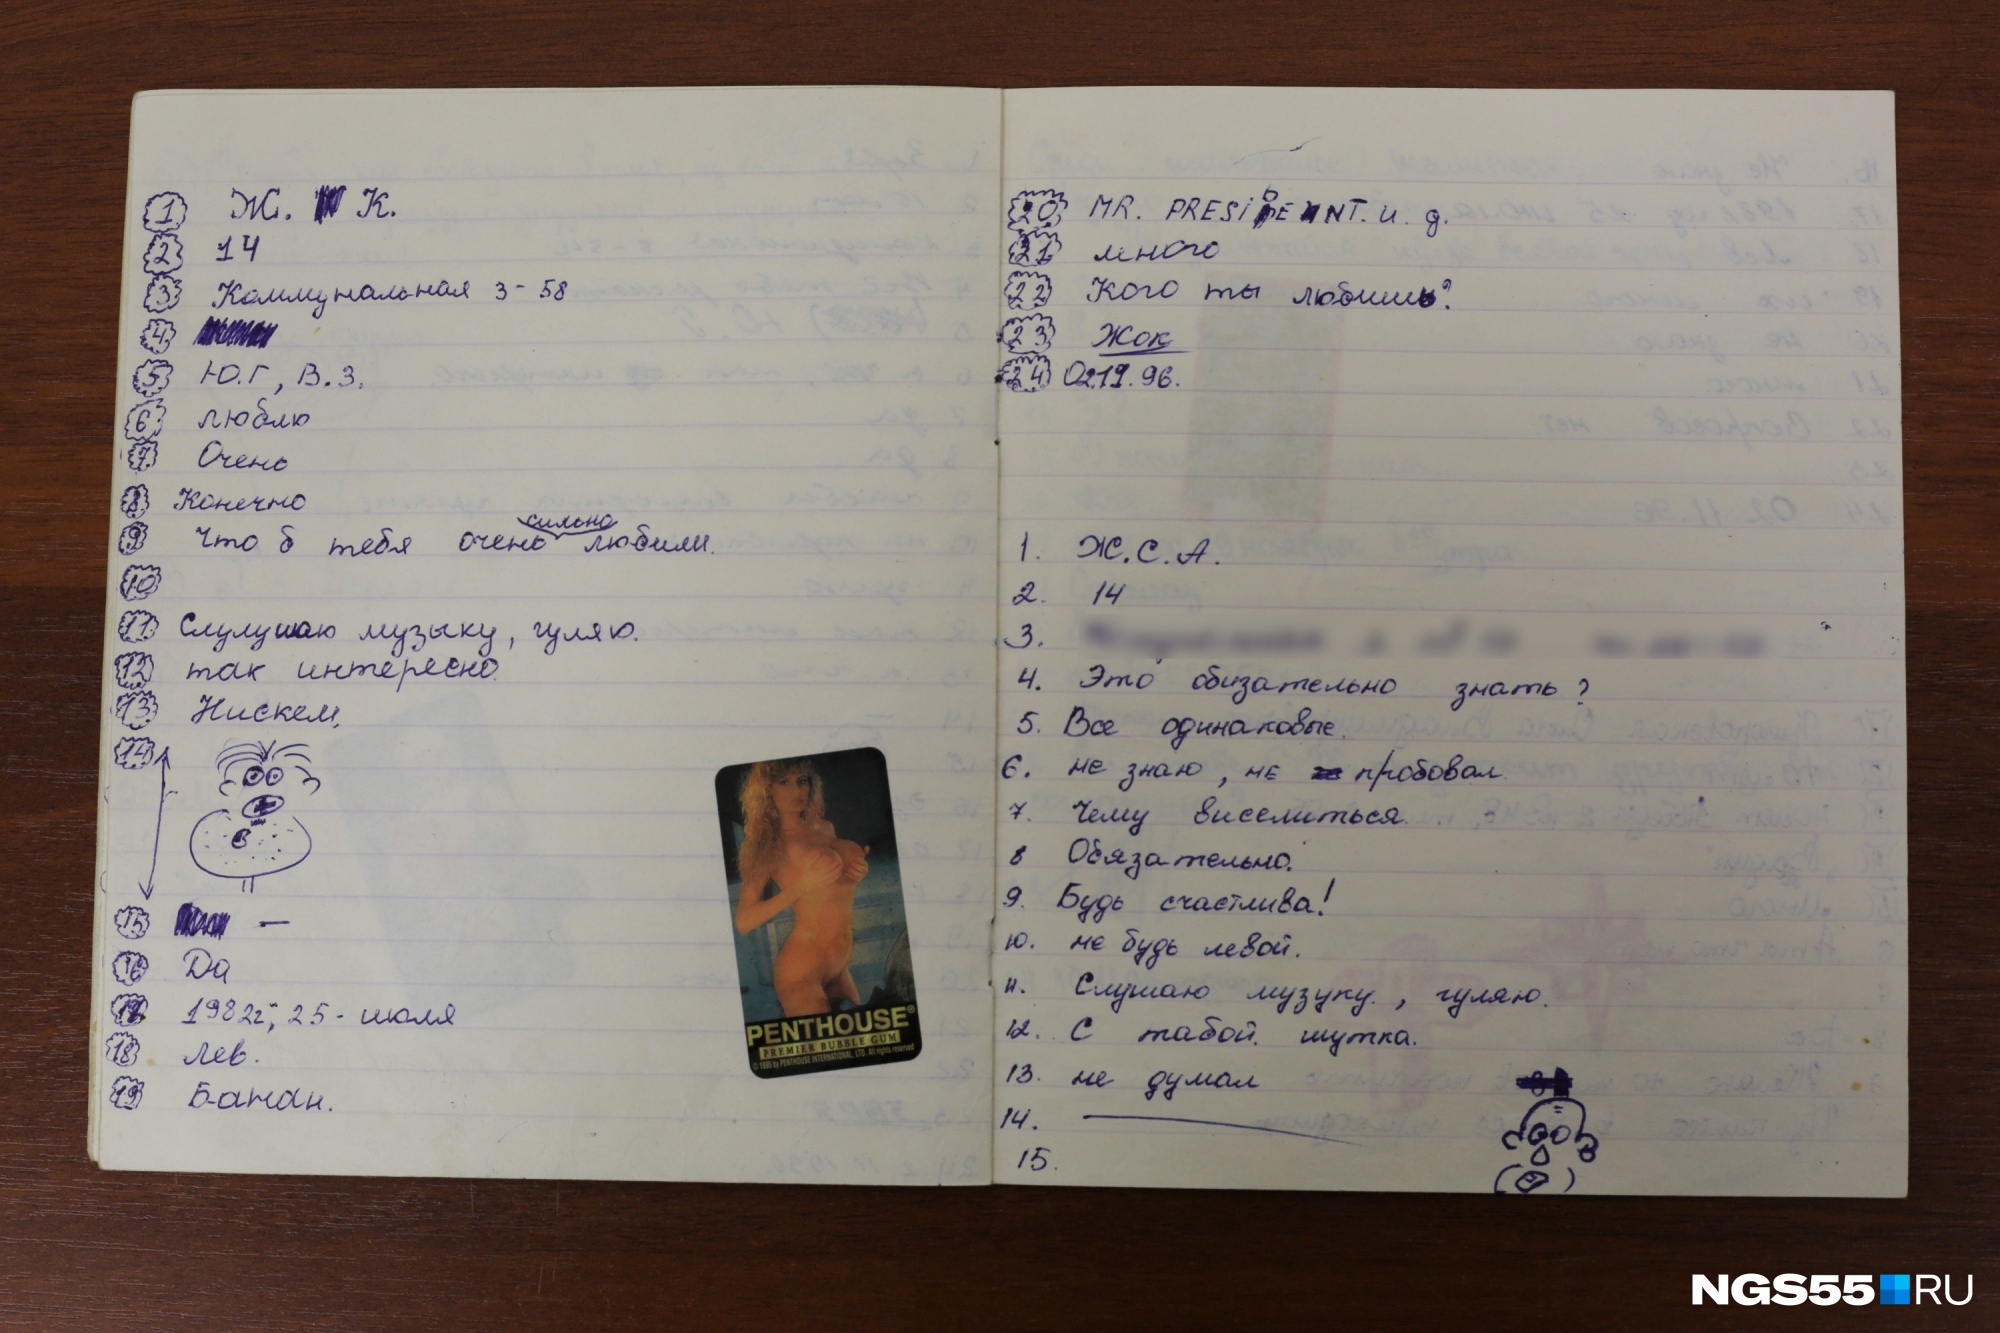 1 Ж. К.
2 14
3 Коммунальная 3-58
4
5 Ю.Г, В.З.
6 люблю
7 Очень
8 Конечно
сильно
9 Что б тебя очень любили.
10
11 Слулушаю музыку, гуляю.
12 так интересно
13 Нискем.
14
15 —
16 Да
17 1982г, 25-июля
18 лев.
19 Батан.
PENTHOUSE®
PREMIER BUBBLE GUM
© 1995 by PENTHOUSE INTERNATIONAL, LTD. All rights reserved
20 MR. PRESIDENT. и. д.
21 много
22 Кого ты любишь?
23 Жок
24 02.11.96.
1. Ж.С.А.
2. 14
3.
4. Это обизательно знать?
5. Все одинаковые.
6. не знаю, не пробовал.
7. Чему виселиться.
8 Обязательно.
9. Будь счастлива!
10. не будь левой.
11. Слушаю музуку, гуляю.
12. С табой. шутка.
13. не думал
14.
15.
NGS55 RU